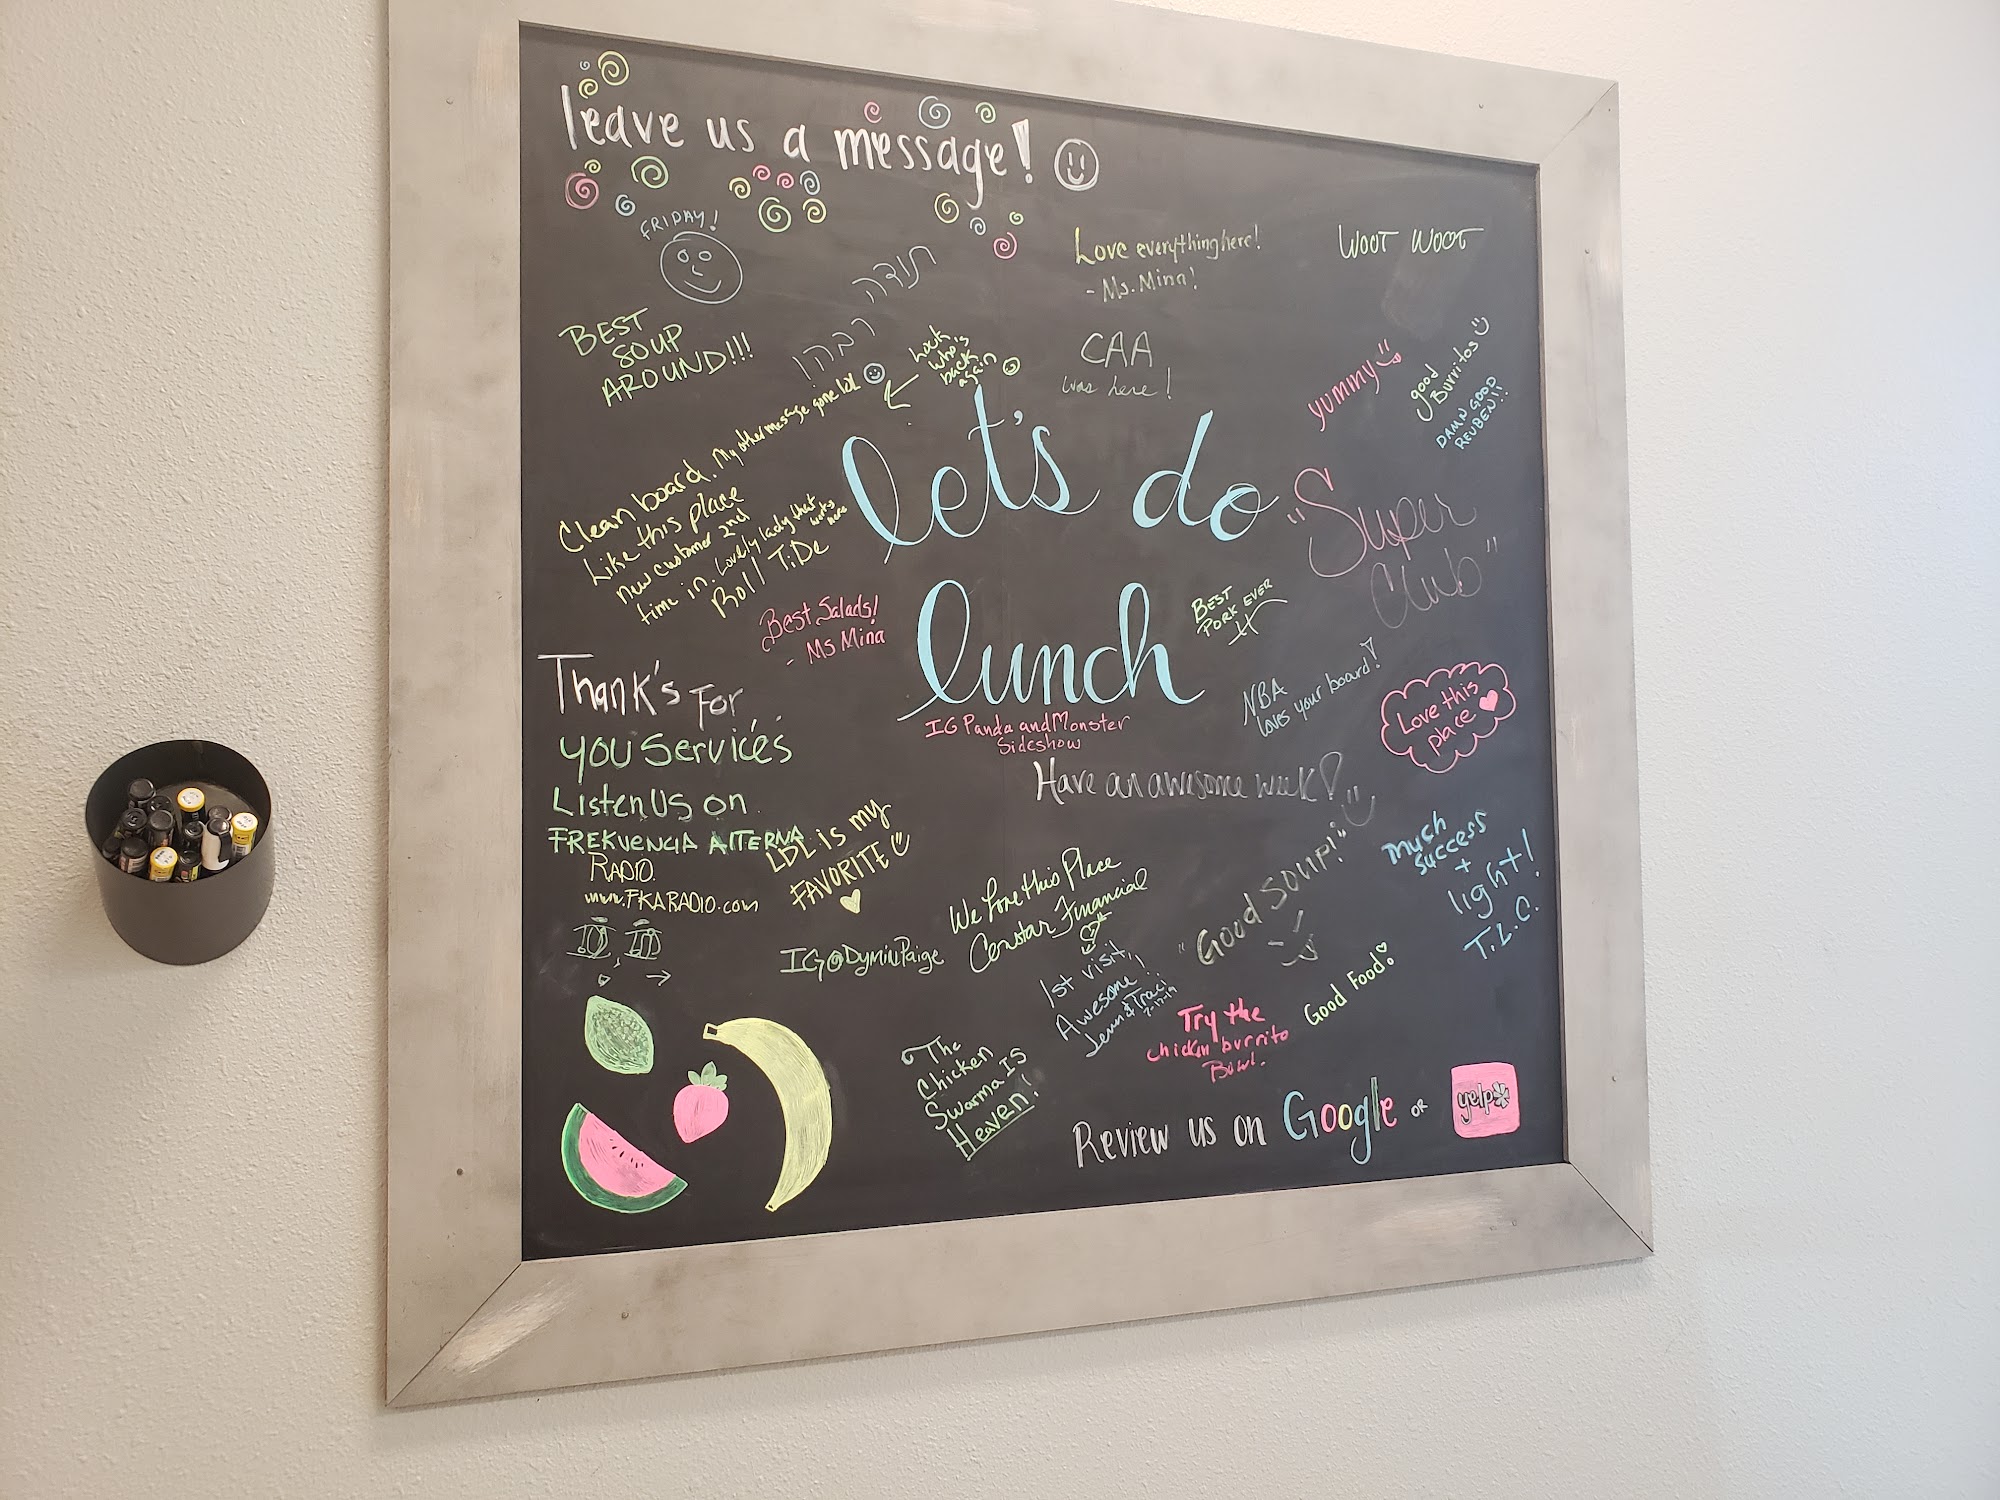 leave us a message!
FRIDAY!
תודה
Love everything here!
- Ms. Mina!
WOOT WOOT
BEST
SOUP
AROUND!!!
Look
who's
back
again
CAA
was here!
yummy
good
Burritos
DAMN GOOD
REUBEN!!
Clean board. My other message gone lol
Like this place
new customer 2nd
time in. Lovely lady that works here
Roll TiDe
let's do
lunch
"Super
Club"
Best Salads!
- Ms Mina
BEST
PORK EVER
NBA
loves your board!
Love this
place
IG Panda and Monster
Sideshow
Thank's For
you Services
Listen us on
FREKVENCIA AlTERNA
RADIO.
www.FKARADIO.com
Have an awesome week!
LDL is my
FAVORITE
much
success
+
light!
T.L.C.
We Love this Place
Financial
"Good Soup!"
IG@DyminPaige
1st visit,
Awesome!
Jenn & Traci
7-17-19
Try the
chicken burrito
Bowl.
Good Food!
The
Chicken
Swarma Is
Heaven!
Review us on Google or yelp